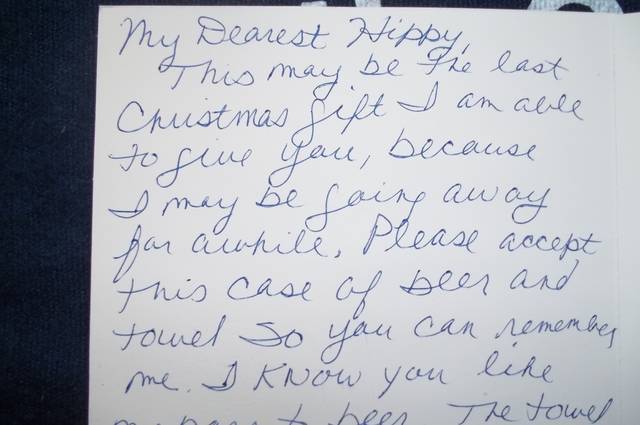 My Dearest Hippy,
This may be the last
Christmas gift I am able
to give you, because
I may be going away
for awhile. Please accept
this case of beer and
towel so you can remember
me. I know you like
beer. The towel